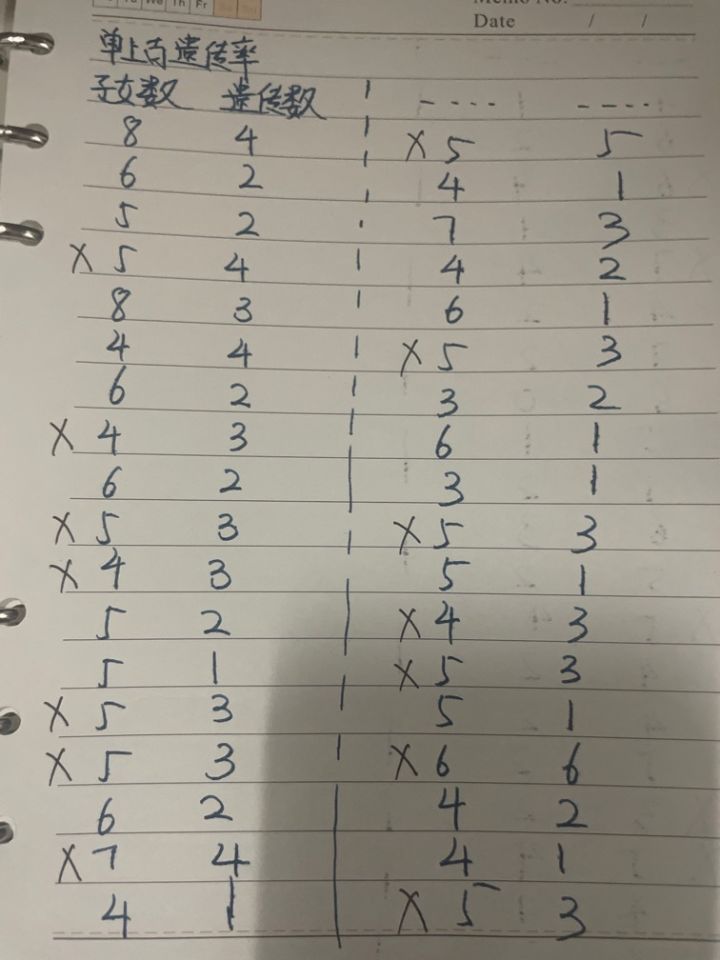 Tu We Th Fr
Memo No.
Date / /
单上百遗传率
子女数 遗传数 - - - - - - - -
8 4 X 5 5
6 2 4 1
5 2 7 3
X 5 4 4 2
8 3 6 1
4 4 X 5 3
6 2 3 2
X 4 3 6 1
6 2 3 1
X 5 3 X 5 3
X 4 3 5 1
5 2 X 4 3
5 1 X 5 3
X 5 3 5 1
X 5 3 X 6 6
6 2 4 2
X 7 4 4 1
4 1 X 5 3